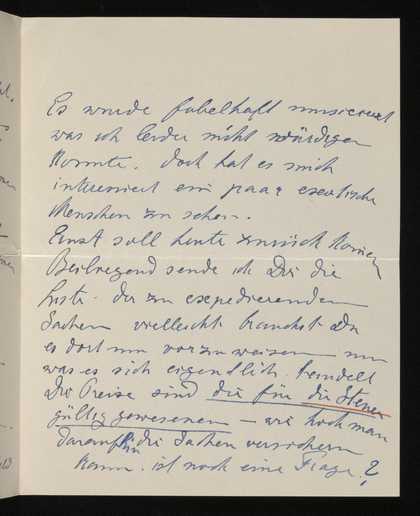 Es wurde fabelhaft musiciert
was ich leider nicht würdigen
konnte. Doch hat es mich
interessiert ein paar exotische
Menschen zu sehen.
Ernst soll heute zurück kommen
Beiliegend sende ich Dir die
Liste der zu expedierenden
Sachen vielleicht brauchst Du
es dort um vorzuweisen um
was es sich eigentlich handelt
Die Preise sind die für die Steuer
gültig gewesenen – wie hoch man
daraufhin die Sachen versichern
kann ist noch eine Frage?